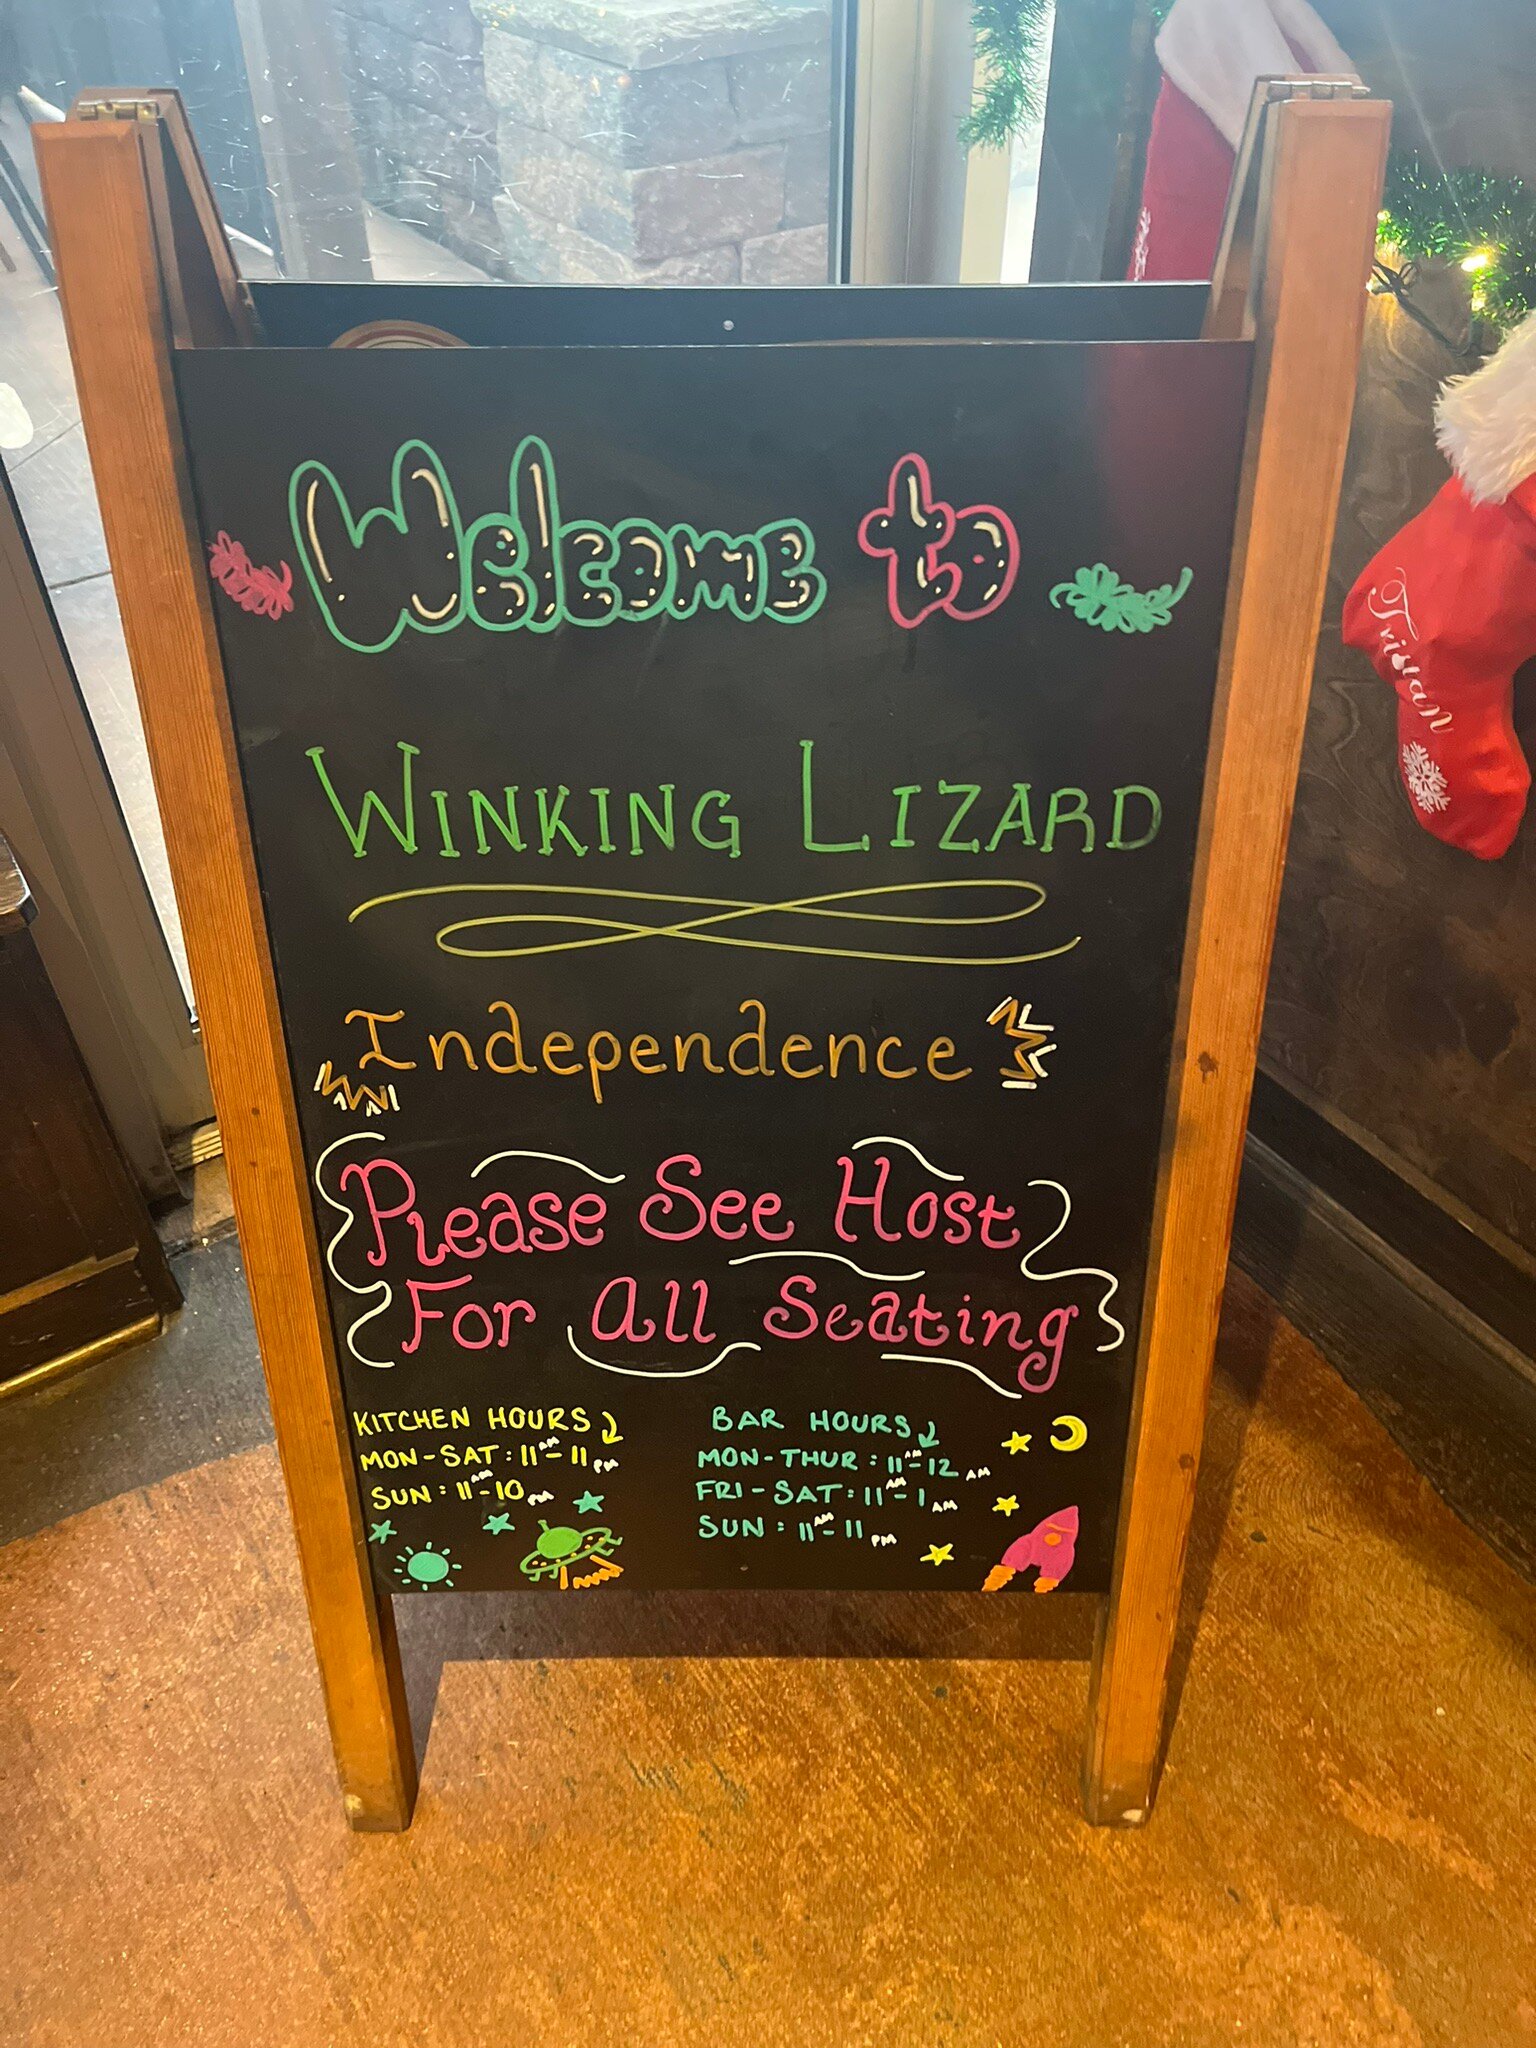 Welcome to
WINKING LIZARD
Independence
Please See Host
For All Seating
KITCHEN HOURS
MON-SAT: 11AM-11PM
SUN: 11AM-10PM
BAR HOURS
MON-THUR: 11AM-12AM
FRI-SAT: 11AM-1AM
SUN: 11AM-11PM
Tristan